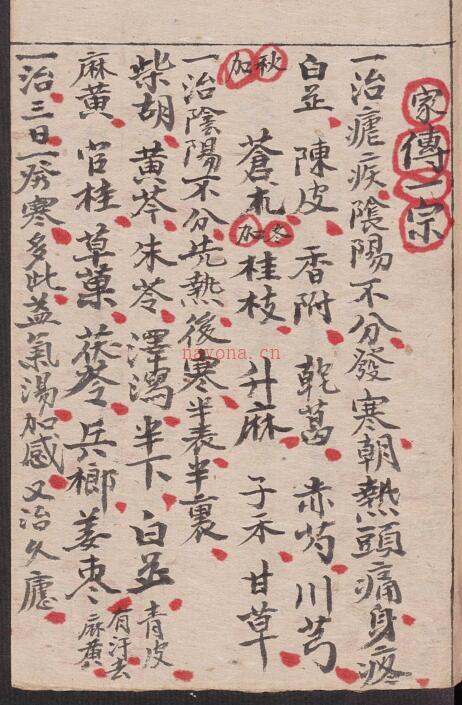 家傳一宗
一治瘧疾陰陽不分發寒朝熱頭痛身疼
白芷 陳皮 香附 乾葛 赤芍 川芎
秋加 蒼朮 冬加 桂枝 升麻 子禾 甘草
一治陰陽不分先熱後寒半表半裏
柴胡 黃芩 朱苓 澤瀉 半下 白芷 青皮
麻黃 官桂 草菓 茯苓 兵榔 姜枣 有汗去麻黃
一治三日一發寒多此益氣湯加感又治久
nayona.cn